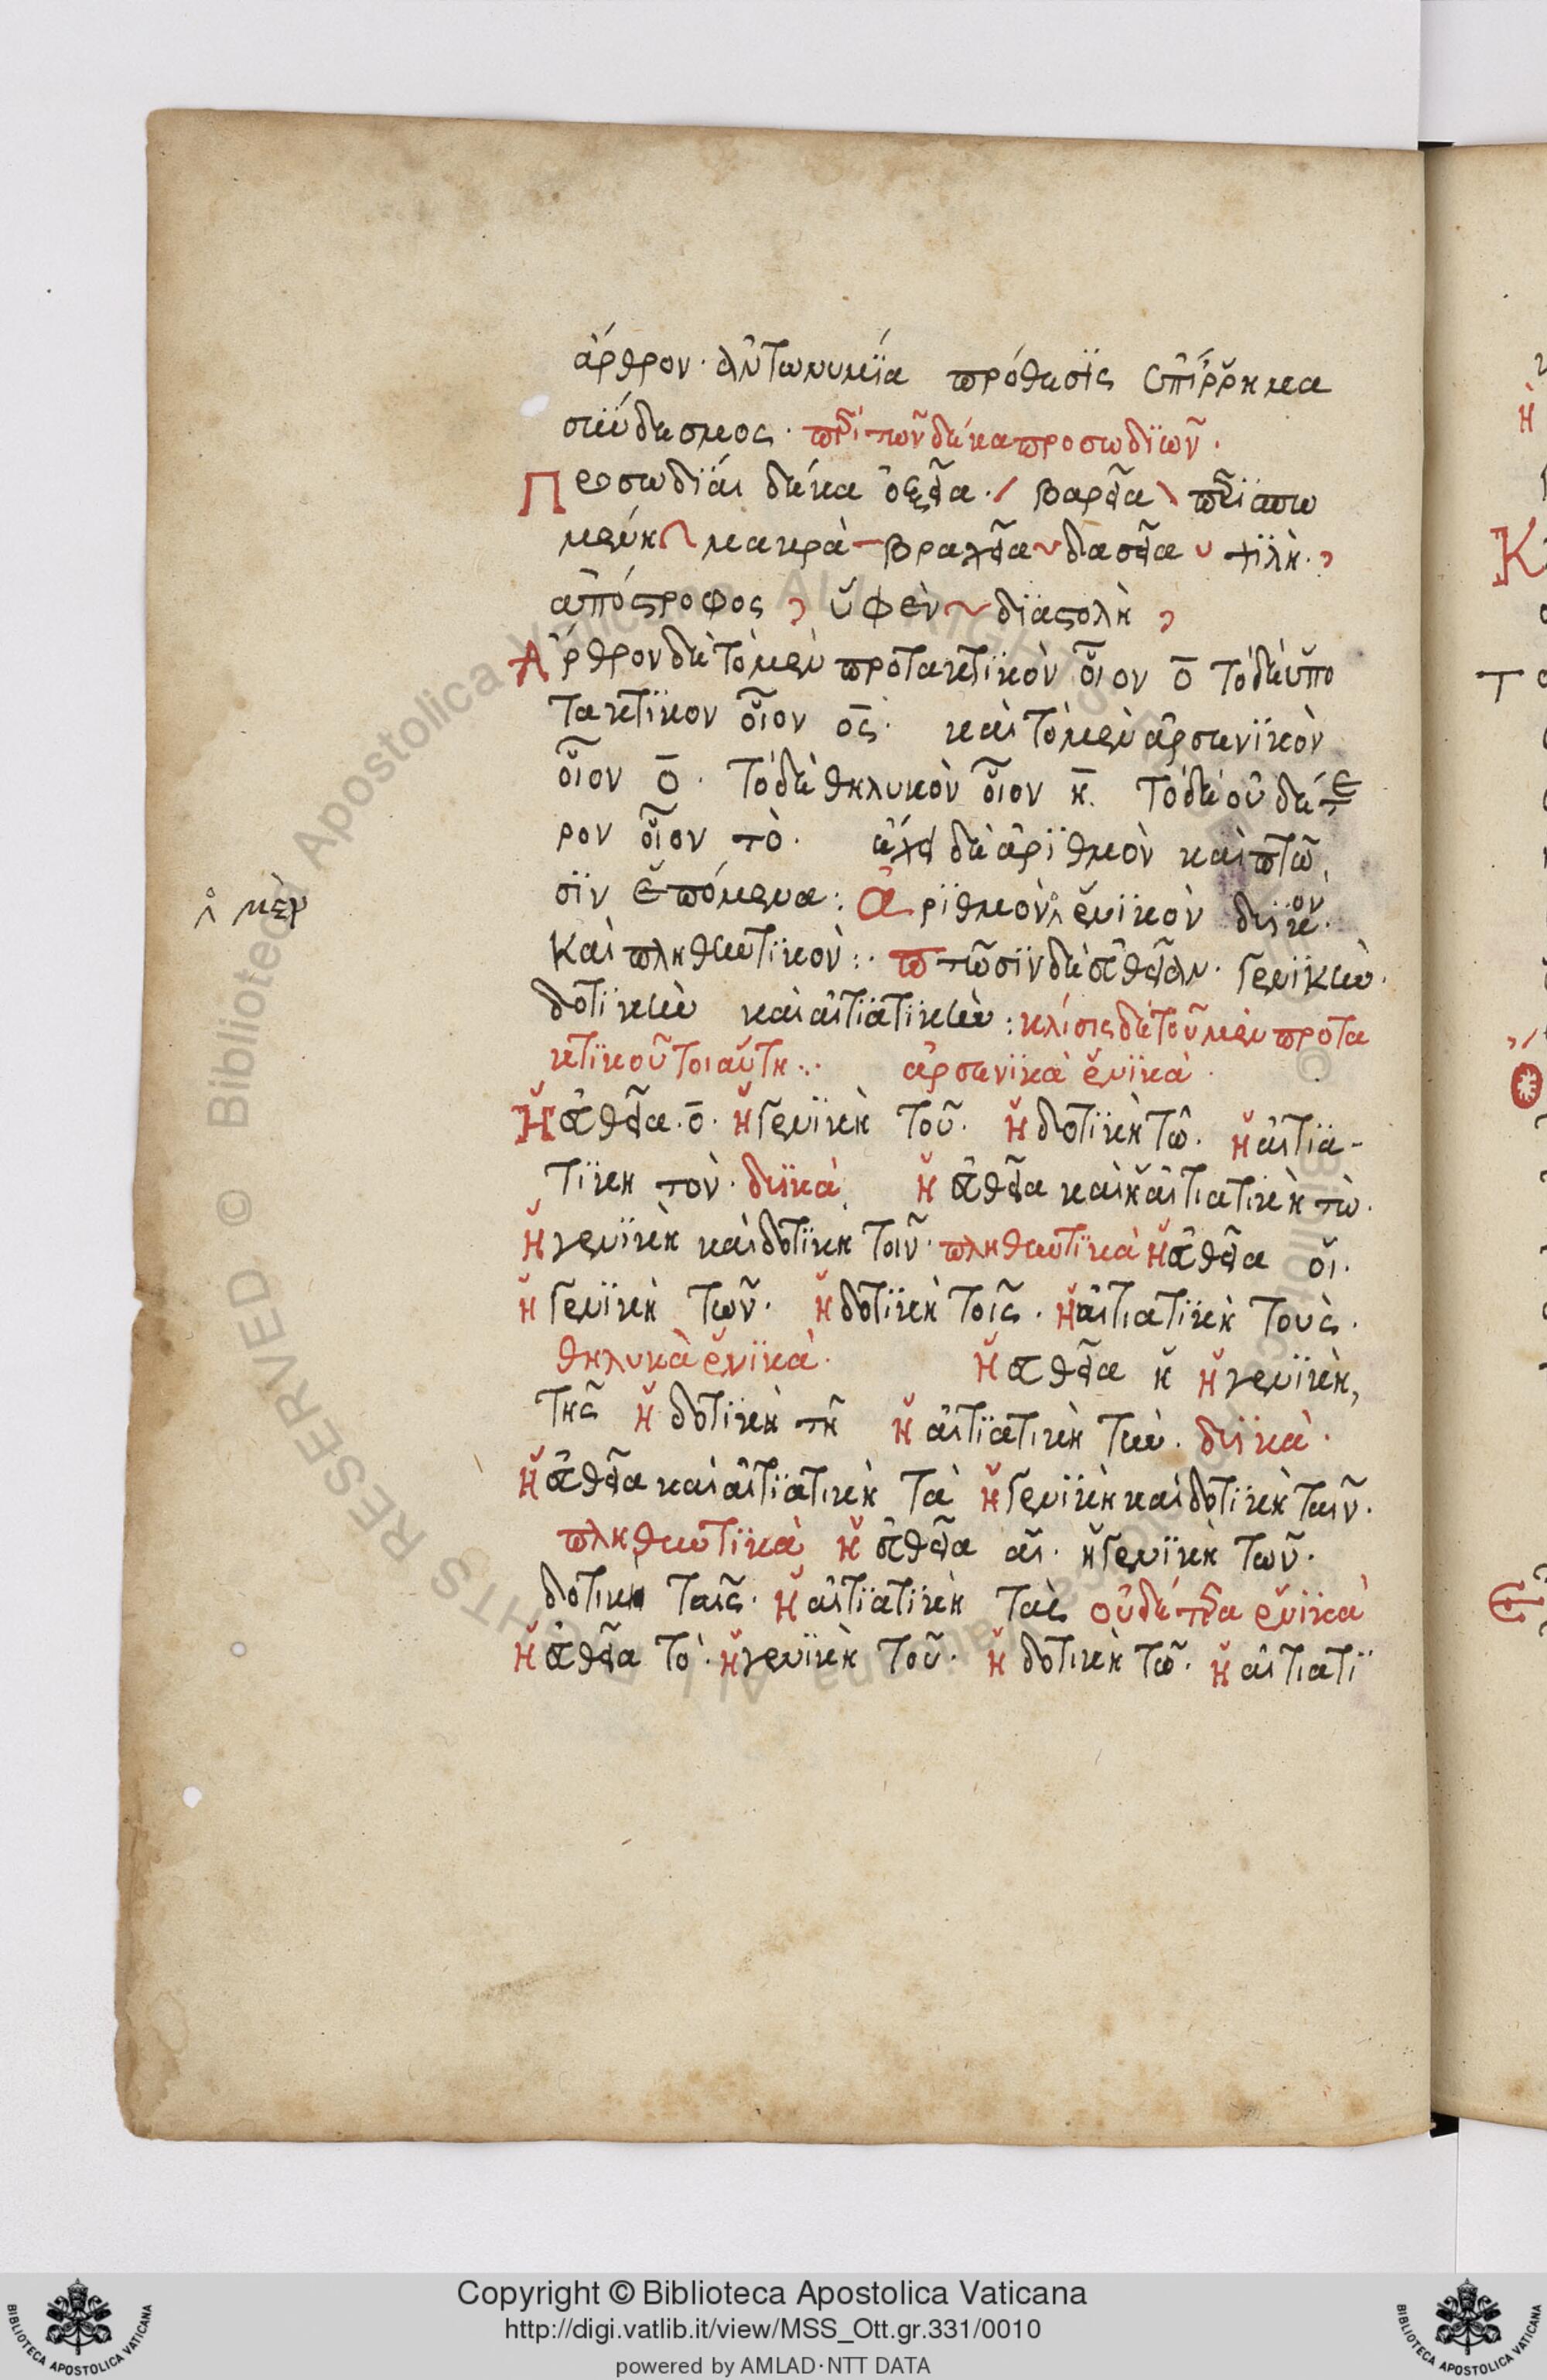 ἄρθρον· ἀντωνυμΐα πρόθεσϊς ἐπίῤῥημα
σΰνδεσμος· περὶ τῶν δέκα προσωδϊῶν·
Προσωδΐαι δέκα ὀξεῖα· / βαρεῖα \ περϊσπω
μένη ῀ μακρὰ – βραχεῖα ˘ δασεῖα ψϊλὴ·
ἀπόστροφος , ὑφὲν διαστολὴ ,
Ἄρθρον δὲ τὸ μὲν προτακτϊκὸν οἷον ὁ τὸ δὲ ὑπο
τακτϊκον οἷον ὅς· καὶ τὸ μὲν ἀρσενϊκὸν
οἷον ὁ· τὸ δὲ θηλυκὸν οἷον ἡ. τὸ δὲ οὐδέτε
ρον οἷον τὸ· ἔχει δὲ ἀρϊθμὸν καὶ πτῶ
σϊν ἑπόμενα: ἀρϊθμὸν ἑνϊκὸν δυϊκὸν·
μὲν
καὶ πληθυντϊκὸν:· πτῶσϊν δὲ εὐθεῖαν· γενϊκὴν·
δοτϊκὴν καὶ αἰτϊατϊκὴν: κλίσις δὲ τοῦ μὲν προτα
κτϊκοῦ τοιαύτη:· ἀρσενϊκὰ ἑνϊκὰ·
Ἡ εὐθεῖα· ὁ· ἡ γενϊκὴ τοῦ· ἡ δοτϊκὴ τῶ· ἡ αἰτϊα-
τϊκη τὸν· δυϊκὰ ἡ εὐθεῖα καὶ ἡ αἰτιατικὴ τὼ·
ἡ γενϊκὴ καὶ δοτϊκη τοῖν· πληθυντϊκὰ ἡ εὐθεῖα οἱ·
ἡ γενϊκὴ τῶν· ἡ δοτϊκὴ τοῖς· ἡ αἰτιατϊκὴ τοὺς·
θηλυκὰ ἑνϊκὰ· ἡ εὐθεῖα ἡ ἡ γενϊκὴ,
τῆς ἡ δοτϊκὴ τῆ ἡ αἰτϊατικὴ τὴν· δυϊκὰ·
ἡ εὐθεῖα καὶ αἰτϊατικὴ τὰ ἡ γενϊκὴ καὶ δοτϊκὴ ταῖν·
πληθυντϊκὰ ἡ εὐθεῖα αἱ· ἡ γενϊκὴ τῶν·
δοτικὴ ταῖς· ἡ αἰτϊατϊκὴ τὰς οὐδέτερα ἑνϊκὰ
ἡ εὐθεῖα τὸ· ἡ γενϊκὴ τοῦ· ἡ δοτικὴ τῶ· ἡ αἰτιατϊ
Copyright © Biblioteca Apostolica Vaticana
http://digi.vatlib.it/view/MSS_Ott.gr.331/0010
powered by AMLAD·NTT DATA